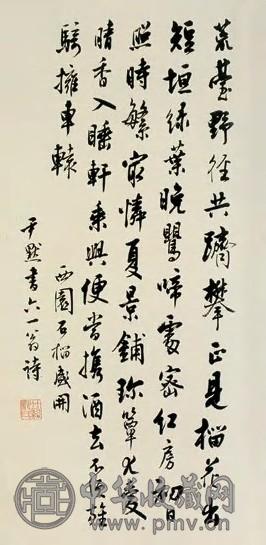 荒臺野徑共躋攀正見榴花出
短垣綠葉晚鶯啼處密紅房初日
照時繁最憐夏景鋪珍簟尤愛
晴香入睡軒乘興便當攜酒去不須旌
騎擁車轅
西園石榴盛開
尹默書六一翁詩
中华收藏网
www.pmv.cn